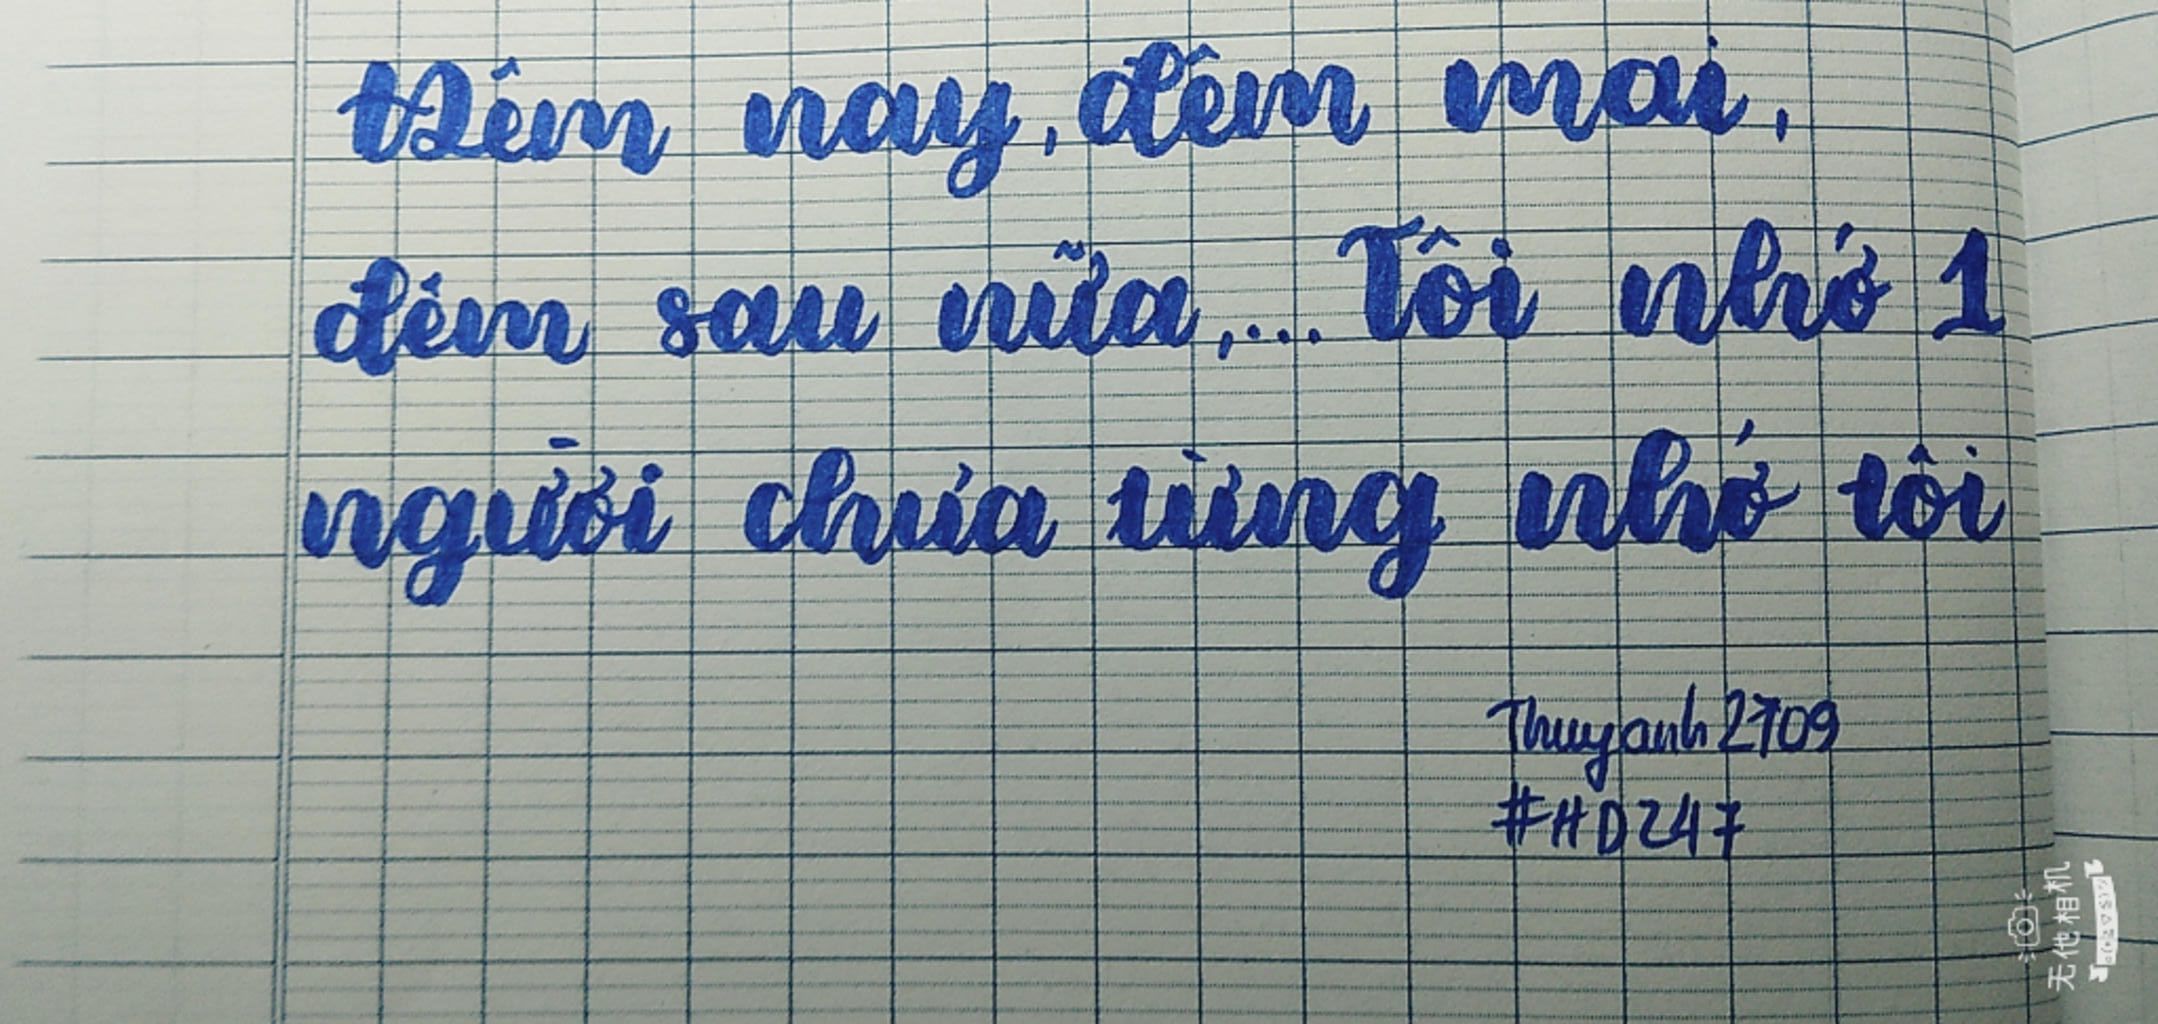 Đêm nay, đêm mai,
đêm sau nữa,... Tôi nhớ 1
người chưa từng nhớ tôi
Thuyanh2709
#HD247
无他相机